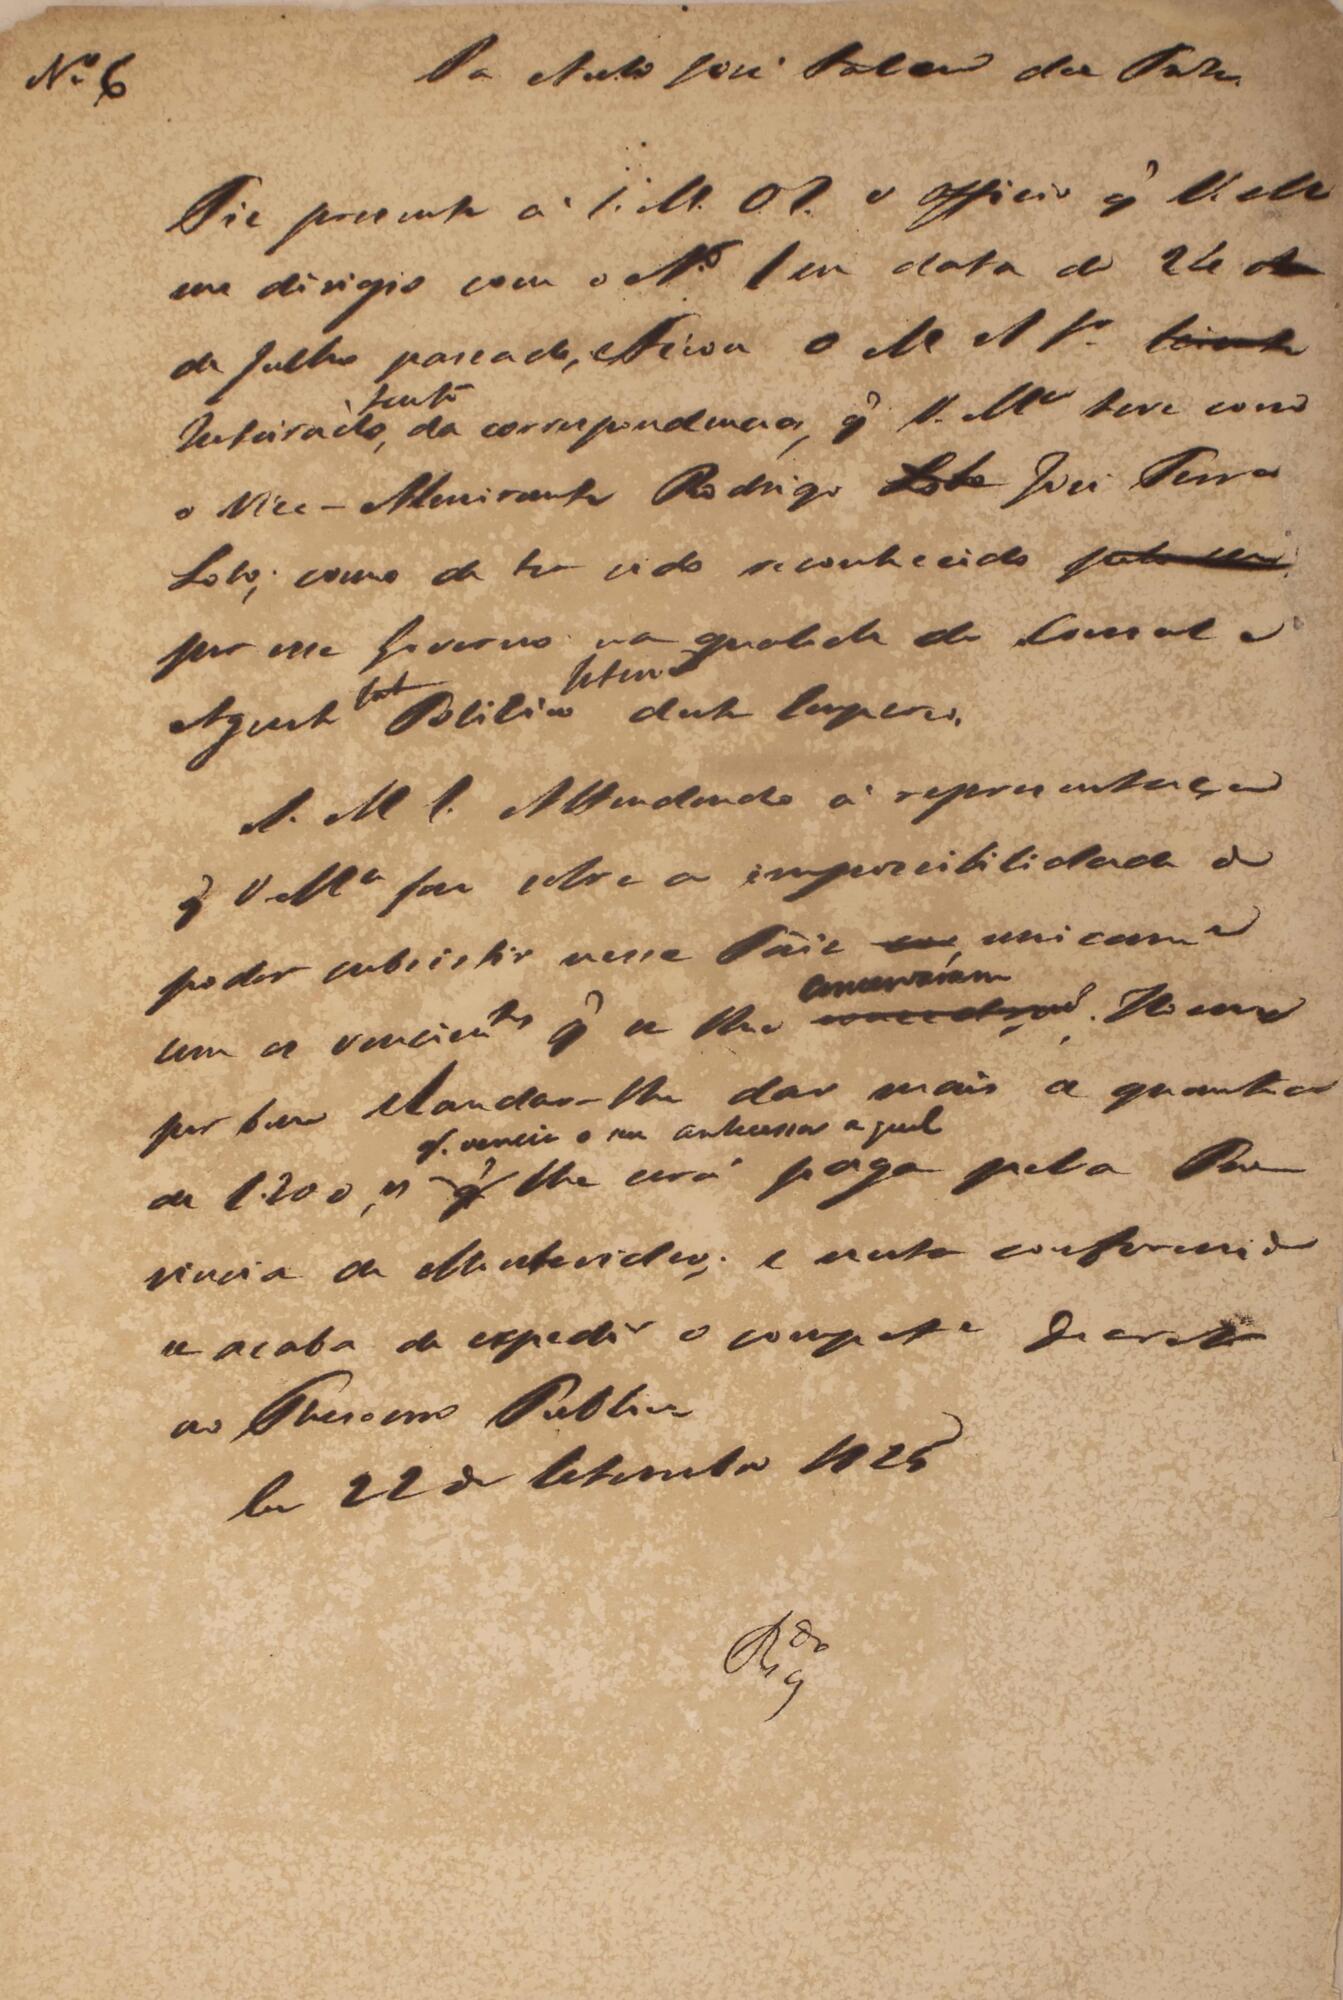 Nº 6
Pa Antº José Falcaõ da Frota
Fiz presente á S. M. O I. o officio q̃ V. Mce
me dirigio com o Nº 1 em data de 24 de
de Julho passado, e Ficou O M A Sr
Inteirado, tanto da correspondencia, q̃ V. Mce teve com
o Vice-Almirante Rodrigo Lobo José Ferra
Lobo; como de ter sido reconhecido pelo
por esse Governo na qualidade de Consul e
Agente Politico Interino deste Imperio.
S. M I. Attendendo á representaçaõ
q̃ V Mce faz sobre a impossibilidade de
poder subsistir nesse Paiz com unicame
com os vencimtos q̃ se lhe conservaram. Houve
por bem Mandar-lhe dar mais a quantia
de 1:200, q. vencia o seu antecessor a qual
q̃ lhe será paga pela Pro
vincia de Montevideo; e nesta conformide
se acaba de expedir o compete Decreto
ao Thesouro Publico
Em 22 de Setembro 1825